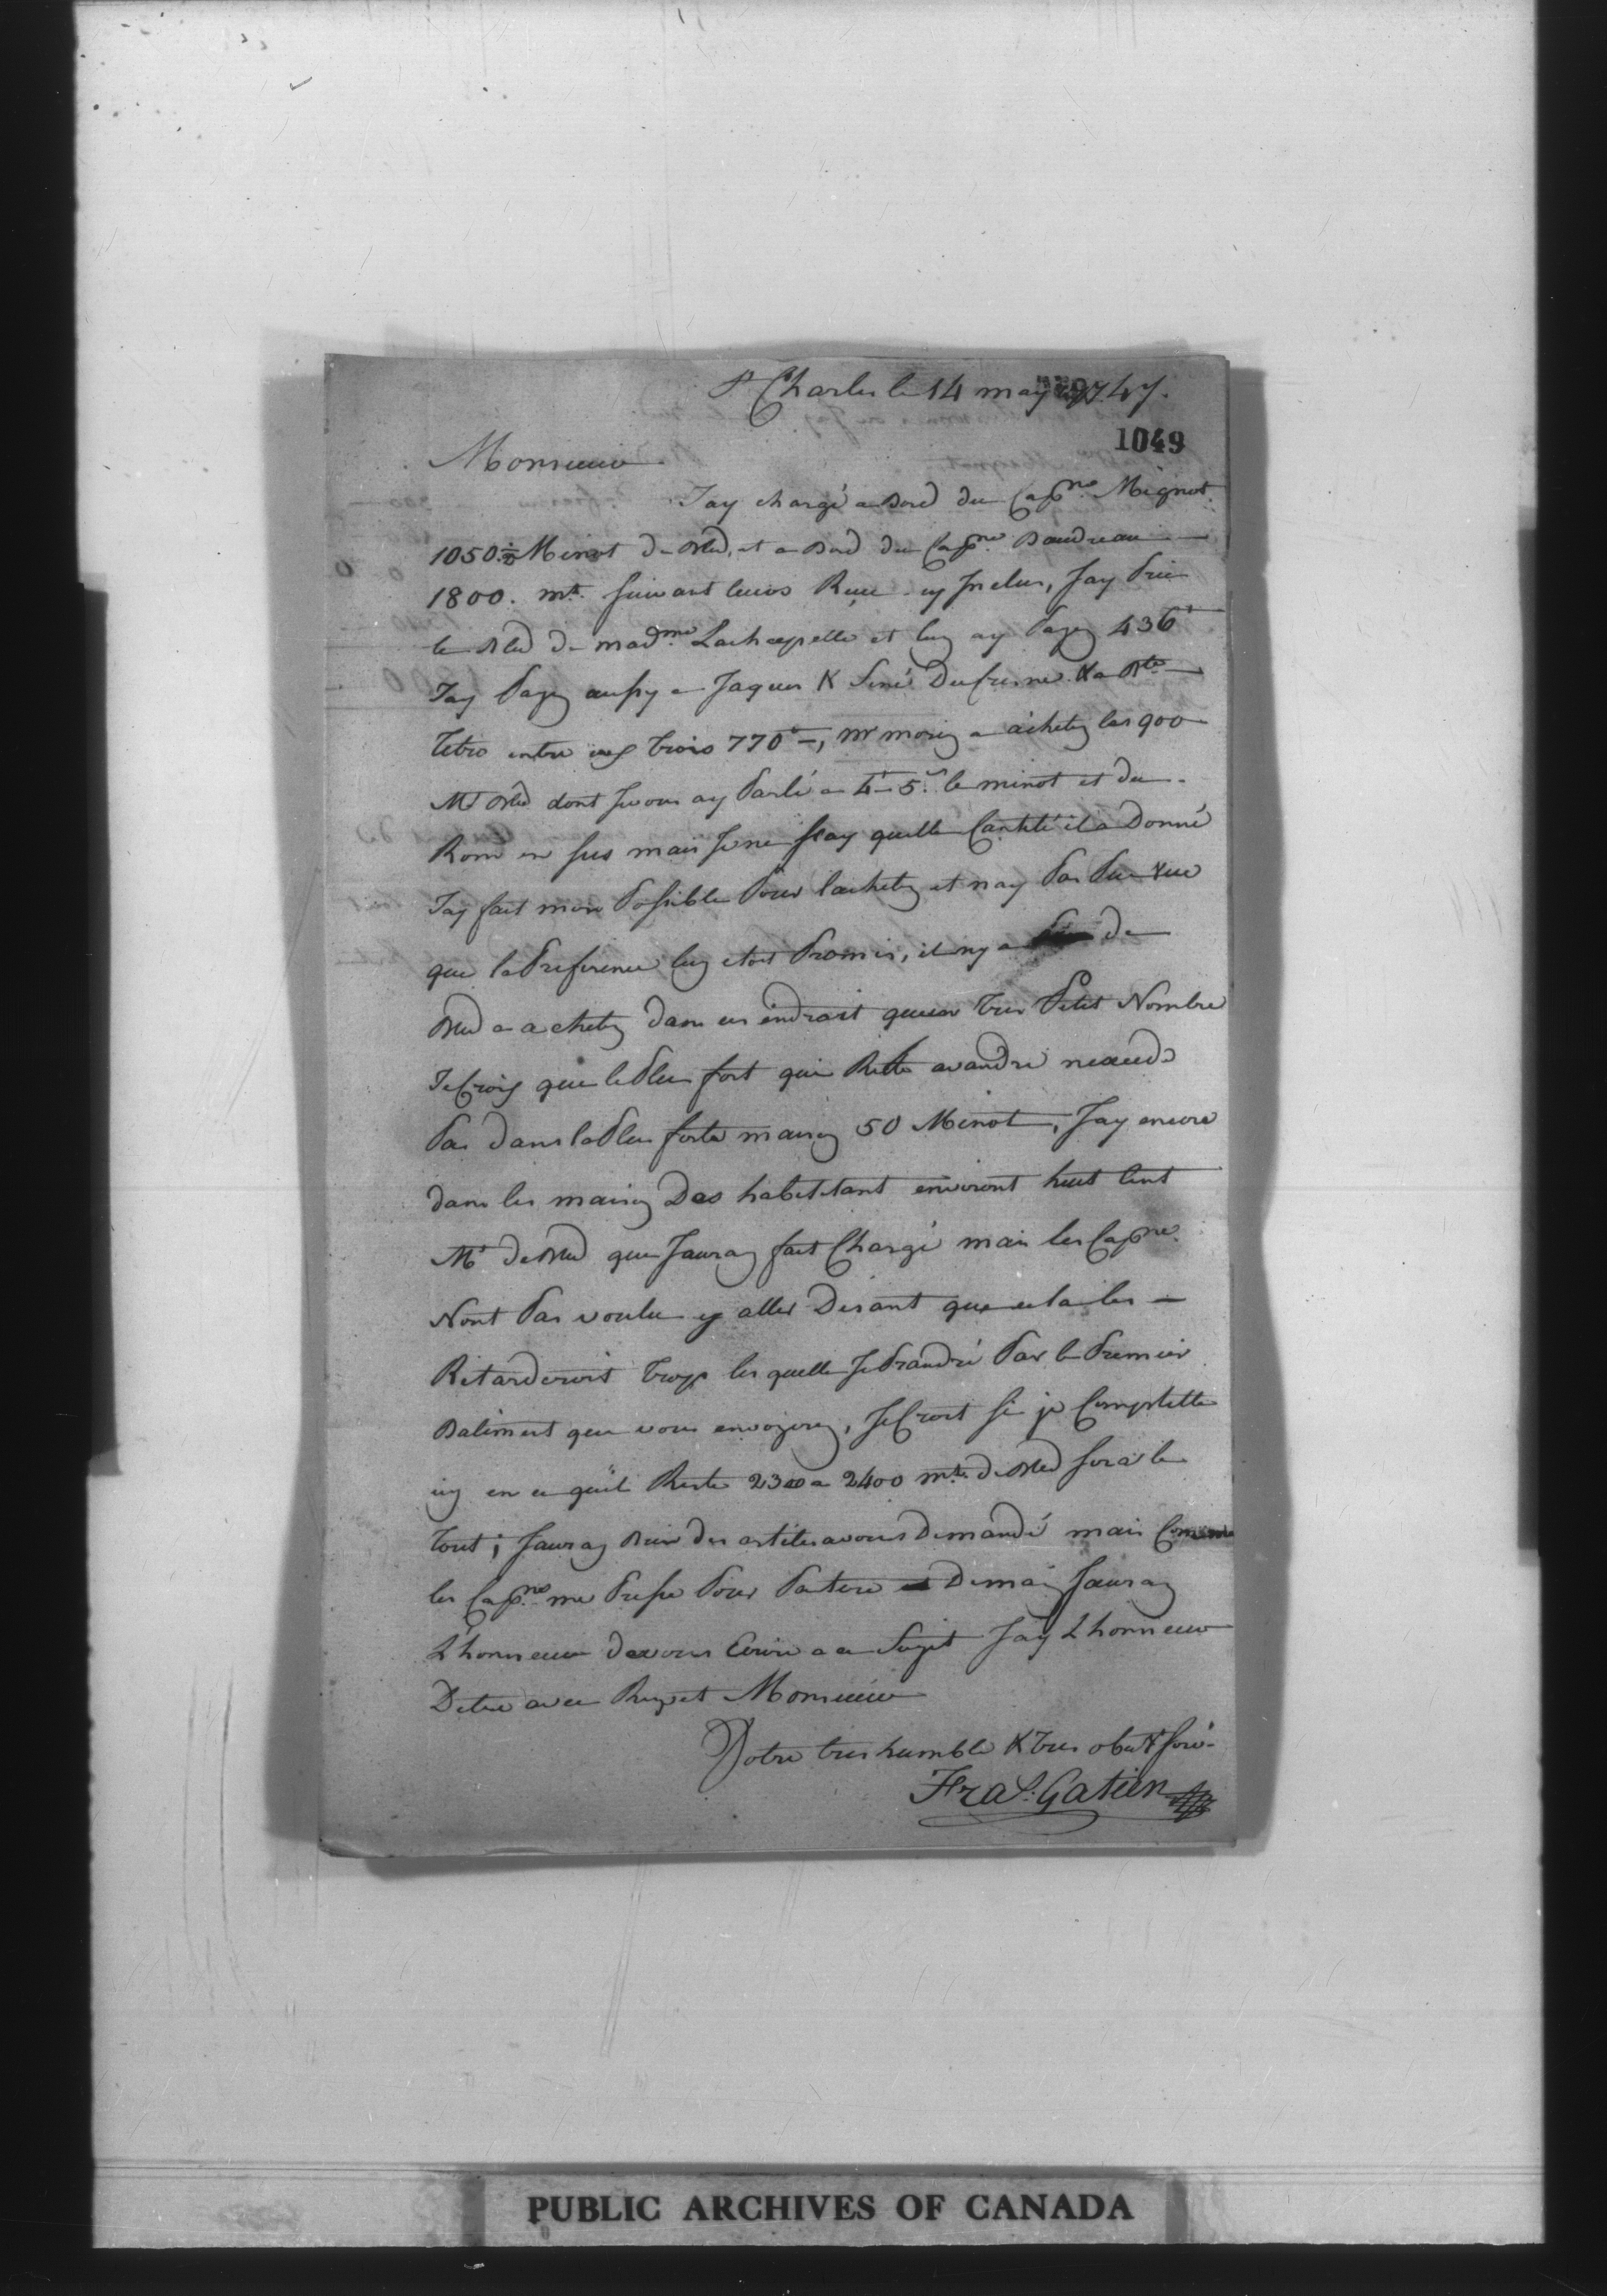 St Charles le 14 may
1049
Monsieur
Jay chargé a Bord du Capne. Mignot
1050 ½ Minot de Bled, et a Bord du Capne. Baudreau
1800. mt. suivant leurs Recu cy Inclus, Jay Pris
le Bled de madme. Lachapelle et luy ay Payez 436
Jay Payez aussy a Jaques & René Dufresne & a Bte
Tétro entre eux trois 770, mr morin a achetez les 900
Mt Bled dont Je vous ay Parlé a 4 - 5 le minot et du
Rom en sus mais Je ne scay quelle Cantité il a Donné
Jay fait mon Possible Pour lachetez et nay Pas Pu vue
que la Preference luy etoit Promis, il ny a de
Bled a achetez dans cet endroit quen tres Petit Nombre
Je Crois que le Plus fort qui Reste avandre nexede
Pas dans la Plus forte maison 50 Minot, Jay encore
dans les maison Des habittant environt huit Cent
Mt de Bled que Jauray fait Chargé mais les Capne.
Nont Pas voulu y aller Disant que cela les
Retarderoit trop les quelle Je Prandré Par le Premier
Batiment que vous envoyerez, Je Croit si je Complette
icy en ce quil Reste 2300 a 2400 mt. de Bled sera le
tout; Jauray Bien des articles avous Demandé mais Comme
les Capne. me Presse Pour Partire Demain Jauray
Lhonneur de vous Ecrire a ce Sujet Jay Lhonneur
Detre avec Respet Monsieur
Votre tres humble & tres obt & serv
Fras. Gatien
PUBLIC ARCHIVES OF CANADA